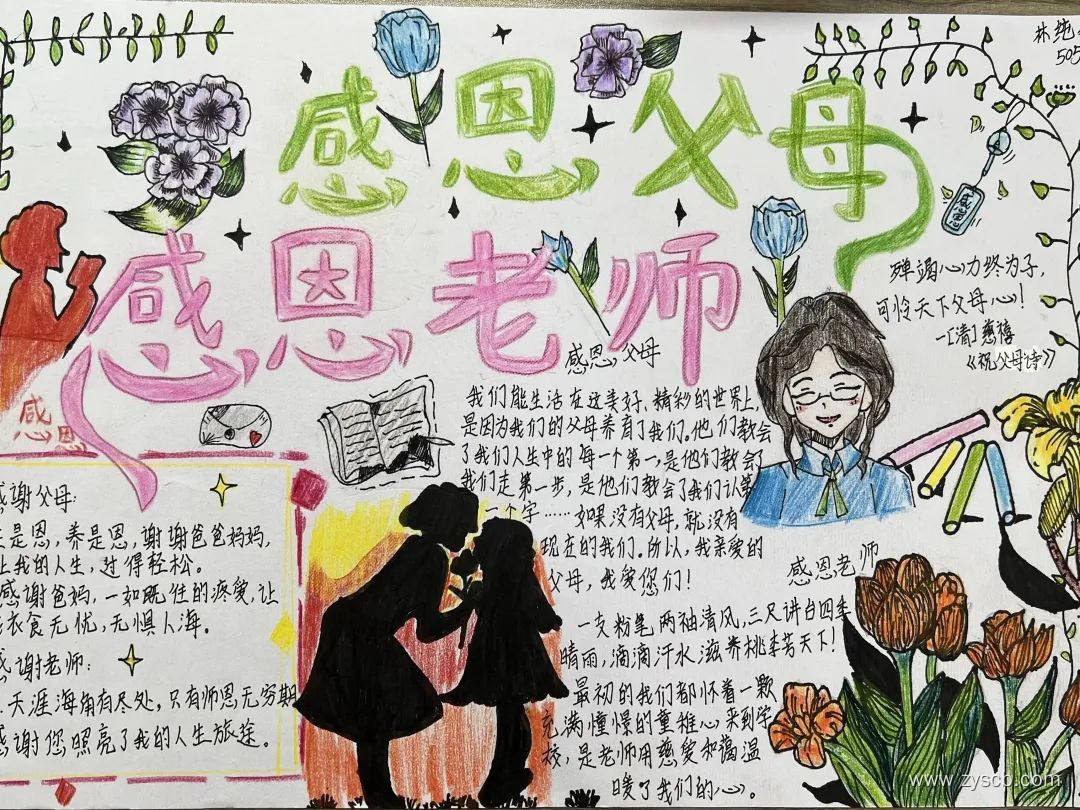 感恩父母
感恩老师
林纯
505
感恩
殚竭心力终为子,
可怜天下父母心!
—[清]慈禧
《祝父母诗》
感恩
感恩父母
我们能生活在这美好、精彩的世界上,
是因为我们的父母养育了我们。他们教会
了我们人生中的每一个第一,是他们教会了
我们走第一步,是他们教会了我们认第
一个字……如果没有父母,就没有
现在的我们。所以,我亲爱的
父母,我爱您们!
感谢父母:
生是恩,养是恩,谢谢爸爸妈妈,
让我的人生,过得轻松。
感谢爸妈,一如既往的疼爱,让
衣食无忧,无惧人海。
感谢老师:
天涯海角有尽处,只有师恩无穷期
感谢您照亮了我的人生旅途。
感恩老师
一支粉笔两袖清风,三尺讲台四季
晴雨,滴滴汗水滋养桃李芳天下!
最初的我们都怀着一颗
充满憧憬的童稚心来到学
校,是老师用慈爱和蔼温
暖了我们的心。
www.zyscp.com